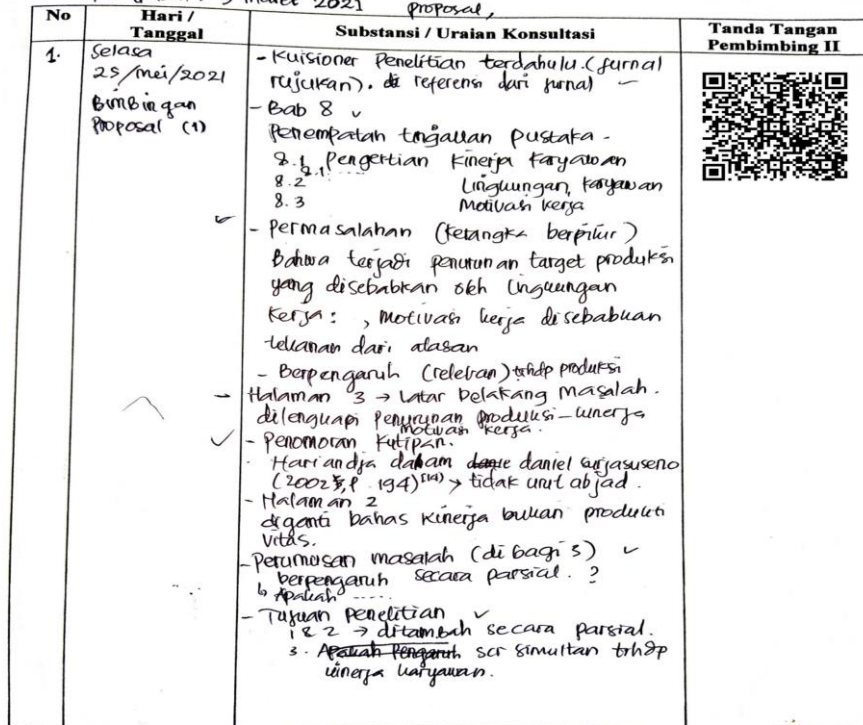 3 Maret 2021 proposal,
No
Hari / Tanggal
Substansi / Uraian Konsultasi
Tanda Tangan Pembimbing II
1.
Selasa
25/mei/2021
Bimbingan
Proposal (1)
- Kuisioner Penelitian terdahulu. (jurnal
rujukan). di referensi dari jurnal
- Bab 8 ✓
Penempatan tinjauan pustaka -
8.1 Pengertian kinerja karyawan
8.1. ....
8.2 Lingkungan, karyawan
8.3 Motivasi kerja
- Permasalahan (kerangka berpikir)
Bahwa terjadi penurunan target produksi
yang disebabkan oleh lingkungan
kerja : , motivasi kerja disebabkan
tekanan dari atasan
- Berpengaruh (relevan) trhdp produksi
- Halaman 3 → Latar belakang Masalah.
dilengkapi penurunan produksi - kinerja
motivasi kerja.
✓ - Penomoran kutipan.
Hariandja dalam daniel surjasuseno
(2002, p 194) [14] → tidak urut abjad.
- Halaman 2
diganti bahas kinerja bukan produkti
vitas.
- Perumusan masalah (di bagi 3) ✓
berpengaruh secara parsial. ?
↳ Apakah .....
- Tujuan penelitian ✓
1 & 2 → ditambah secara parsial.
3. Apakah Pengaruh scr simultan trhdp
kinerja karyawan.